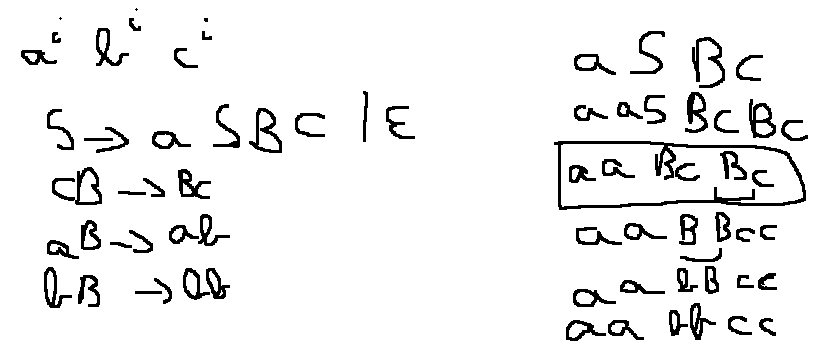 aⁱ bⁱ cⁱ
S → a S B c | ε
cB → Bc
aB → ab
bB → bb
a S B c
a a S B c B c
a a B c B c
a a B B c c
a a b B c c
a a b b c c